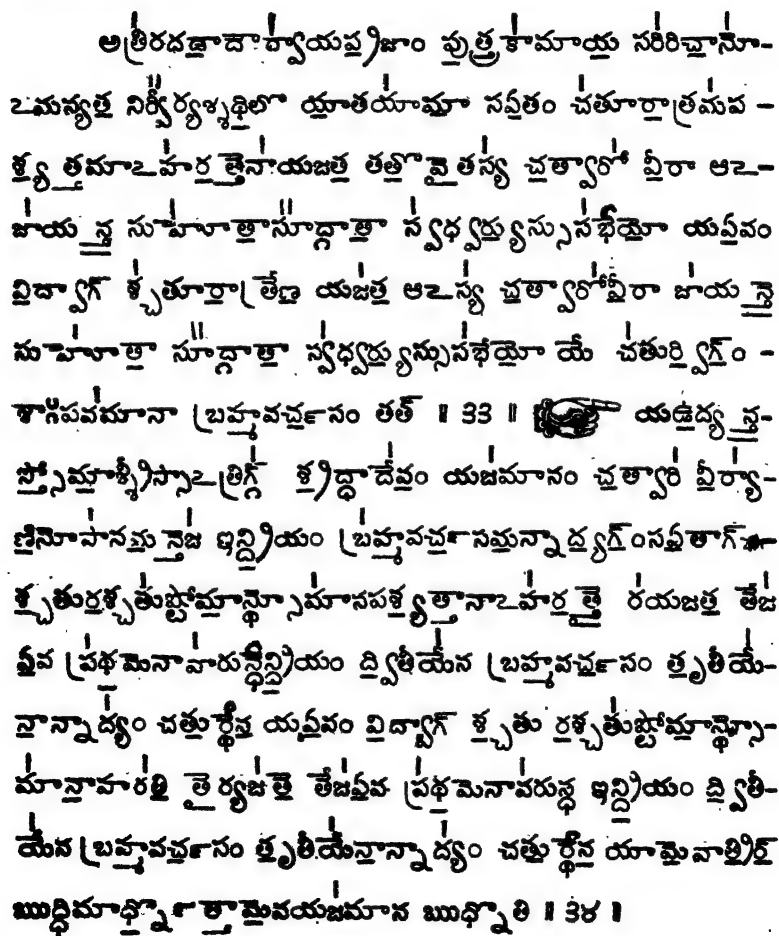 అత్రిరదదాదౌర్వాయప్రజాం పుత్త్రకామాయ సరిరిచానో-
ఽమన్యత నిర్వీర్యశ్శిథిలో యాతయామా సఏతం చతూరాత్రమప -
శ్యత్తమాఽహరత్తేనాయజత తతోవైతస్య చత్వారో వీరా ఆఽ-
జాయన్త సుహోతాసూద్గాతా స్వధ్వర్యుస్సుసభేయో యఏవం
విద్వాగ్ శ్చతూరాత్రేణ యజత ఆఽస్య చత్వారోవీరా జాయన్తే
సుహోతా సూద్గాతా స్వధ్వర్యుస్సుసభేయో యే చతుర్విగ్ం -
శాఃపవమానా బ్రహ్మవర్చసం తత్ ॥ ౩౩ ॥ యఉద్యన్త-
స్స్తోమాశ్శ్రీస్సాఽత్రిగ్గ్ శ్రద్ధాదేవం యజమానం చత్వారి వీర్యా-
ణినోపానమన్తేజ ఇన్ద్రియం బ్రహ్మవర్చసమన్నాద్యగ్ంసఏతాగ్-
శ్చతురశ్చతుష్టోమాన్థ్సోమానపశ్యత్తానాఽహరత్తై రయజత తేజ
ఏవ ప్రథమేనావారున్ధేన్ద్రియం ద్వితీయేన బ్రహ్మవర్చసం తృతీయే-
నాన్నాద్యం చతుర్థేన యఏవం విద్వాగ్ శ్చతు రశ్చతుష్టోమాన్థ్సో-
మానాహరతి తైర్యజతే తేజఏవ ప్రథమేనావరున్ధ ఇన్ద్రియం ద్వితీ-
యేన బ్రహ్మవర్చసం తృతీయేనాన్నాద్యం చతుర్థేన యామేవాత్రిర్
ఋద్ధిమార్ధ్నోత్తామేవయజమాన ఋధ్నోతి ॥ ౩౪ ॥